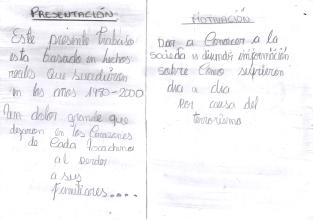 PRESENTACIÓN
Este presente trabajo
esta basado en hechos
reales que sucedieron
en los años 1980-2000
Un dolor grande que
dejaron en los Corazones
de Cada
al perder
a sus
familiares....
MOTIVACIÓN
Dar a Conocer a la
difundir información
sobre Como sufrieron
dia a dia
Por causa del
terrorismo